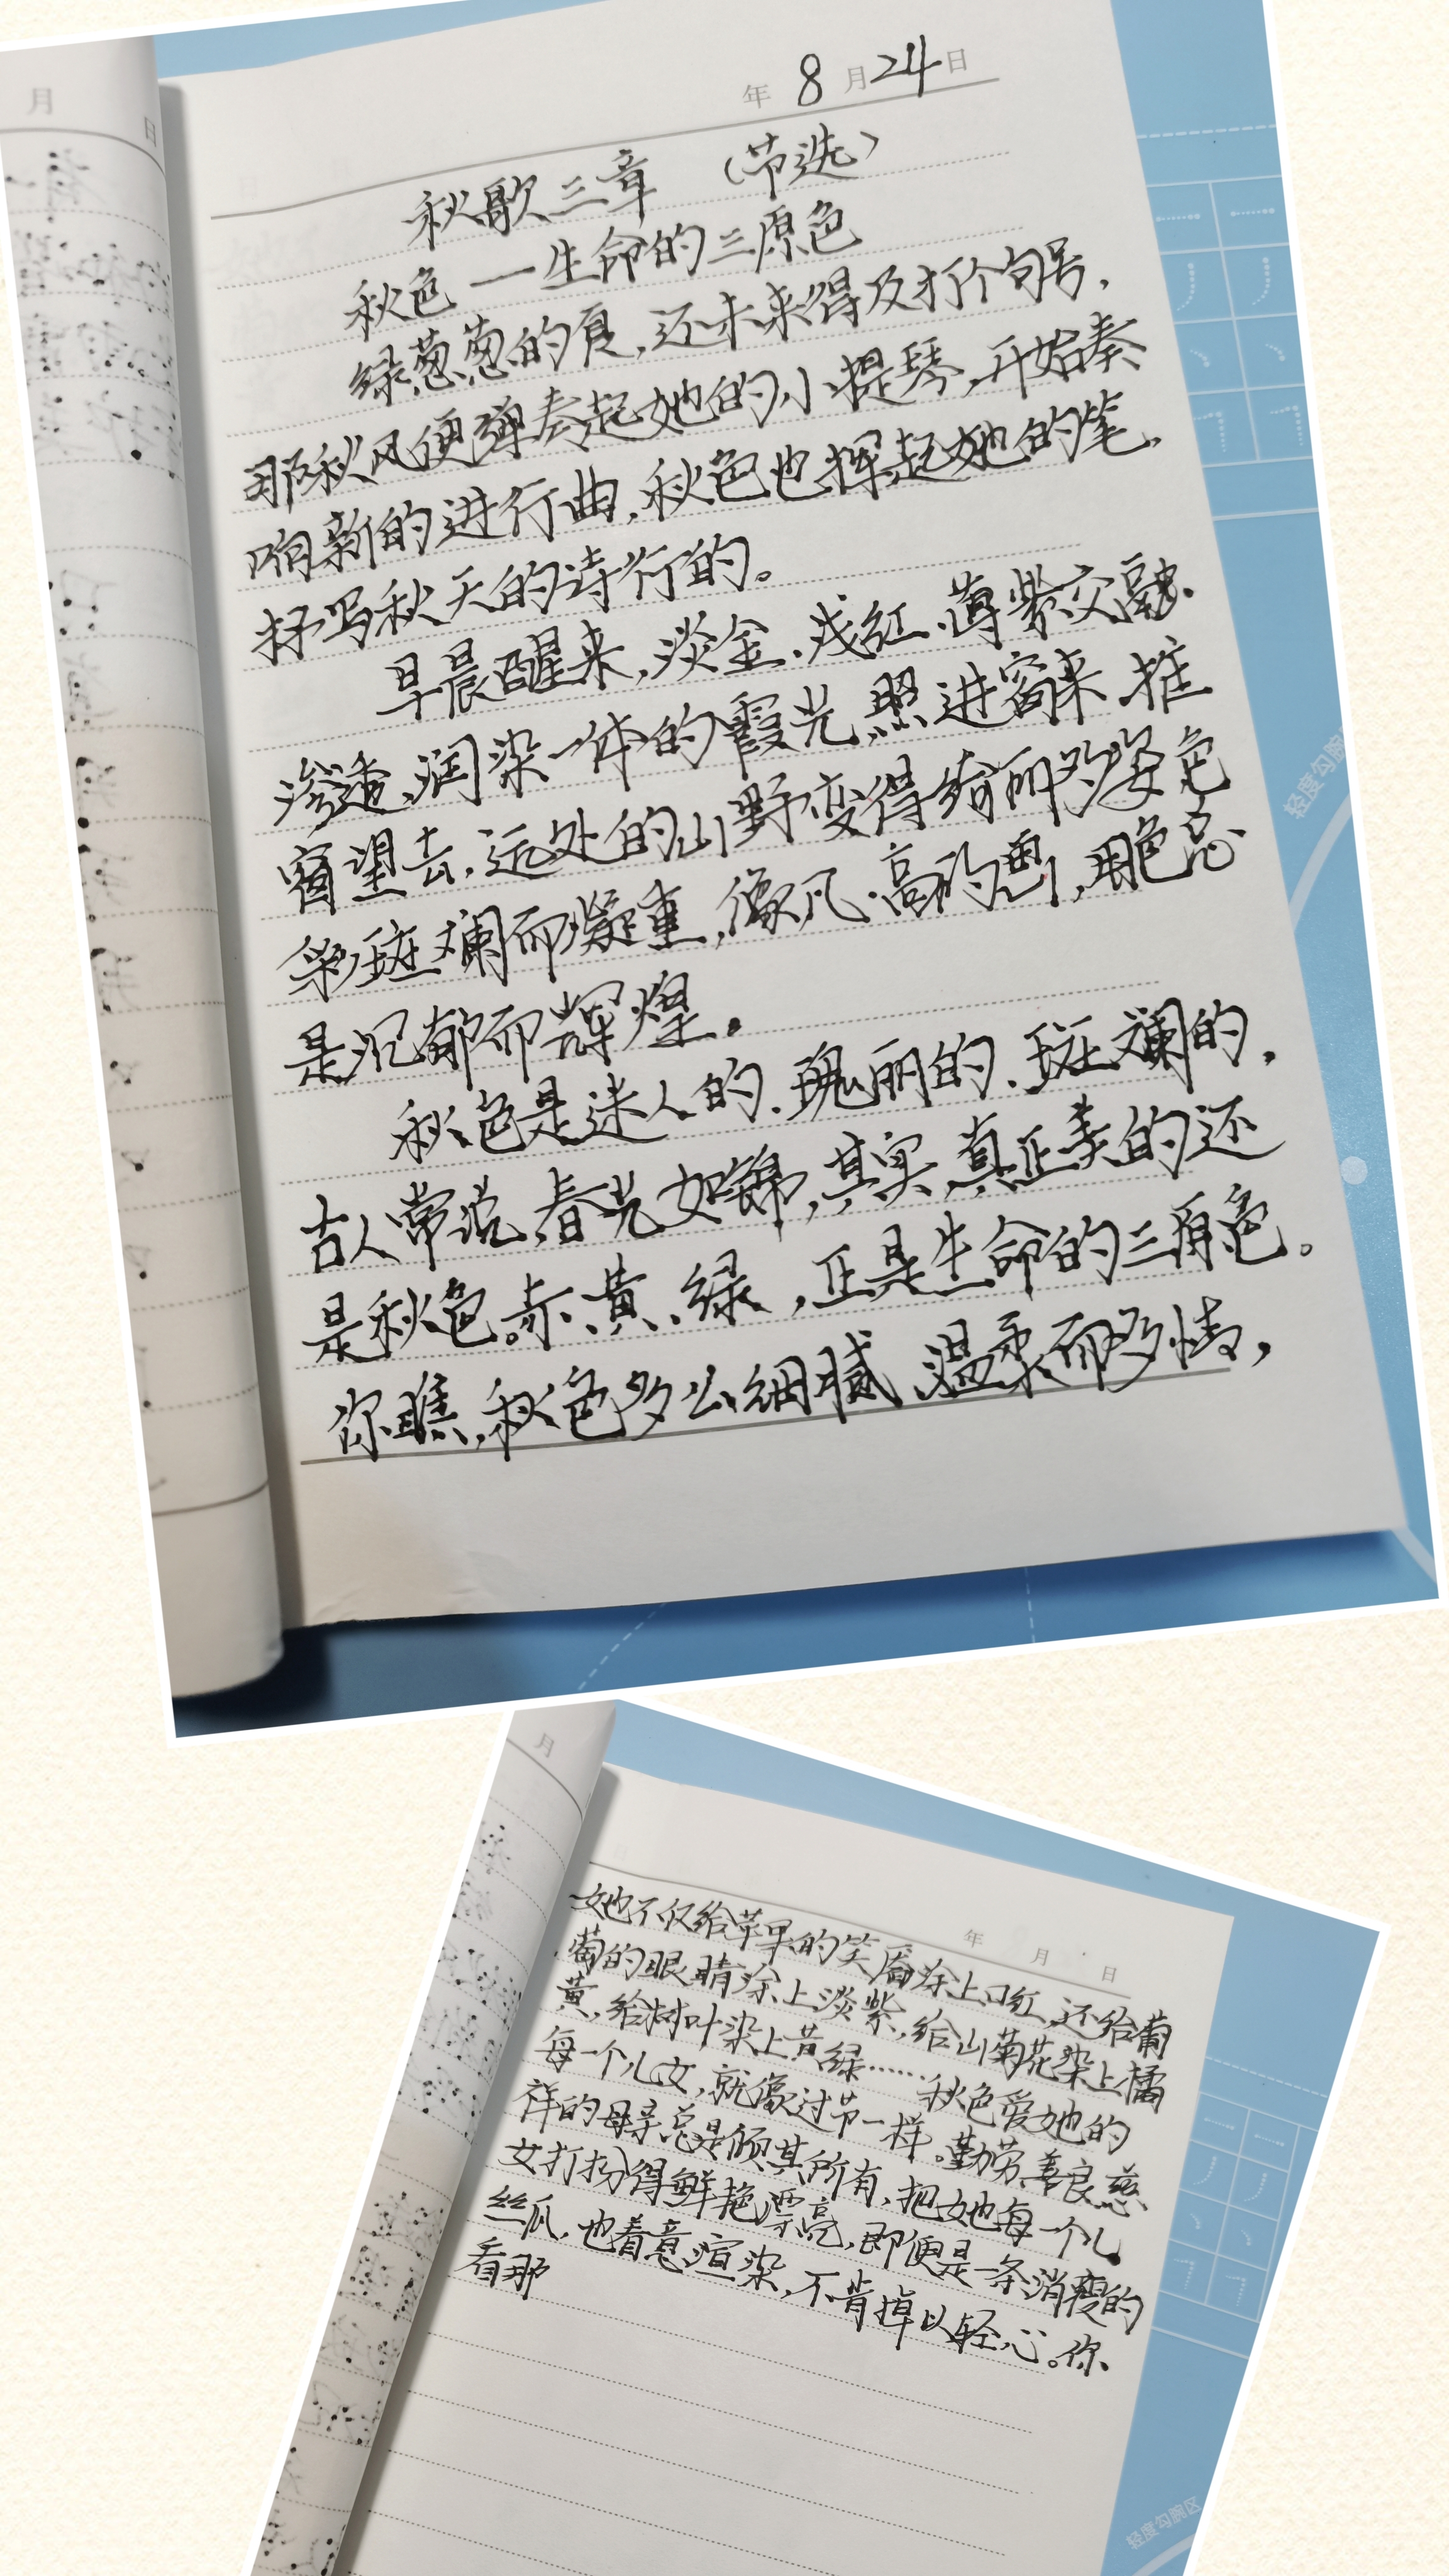 月
日
年 8 月 24 日
秋歌三章 （节选）
秋色 一 生命的三原色
绿葱葱的夏，还未来得及打个句号，
那秋风便弹奏起她的小提琴，开始奏
响新的进行曲，秋色也挥起她的笔，
抒写秋天的诗行的。
早晨醒来，淡金、浅红、薄紫交融、
渗透、润染一体的霞光，照进窗来，推
窗望去，远处的山野变得绚丽多姿，色
彩斑斓而凝重，像凡·高的画，用色总
是沉郁而辉煌。
秋色是迷人的、瑰丽的、斑斓的，
古人常说，春光如锦，其实，真正美的还
是秋色。赤、黄、绿，正是生命的三原色。
你瞧，秋色多么细腻、温柔而多情，
轻度勾腕
月
年 月 日
她不仅给苹果的笑靥涂上口红，还给葡
萄的眼睛涂上淡紫，给山菊花染上橘
黄，给树叶染上黄绿……秋色爱她的
每一个儿女，就像过节一样。勤劳、善良、慈
祥的母亲总是倾其所有，把她每一个儿
女打扮得鲜艳漂亮，即便是一条消瘦的
丝瓜，也着意渲染，不肯掉以轻心。你
看那
轻度勾腕区